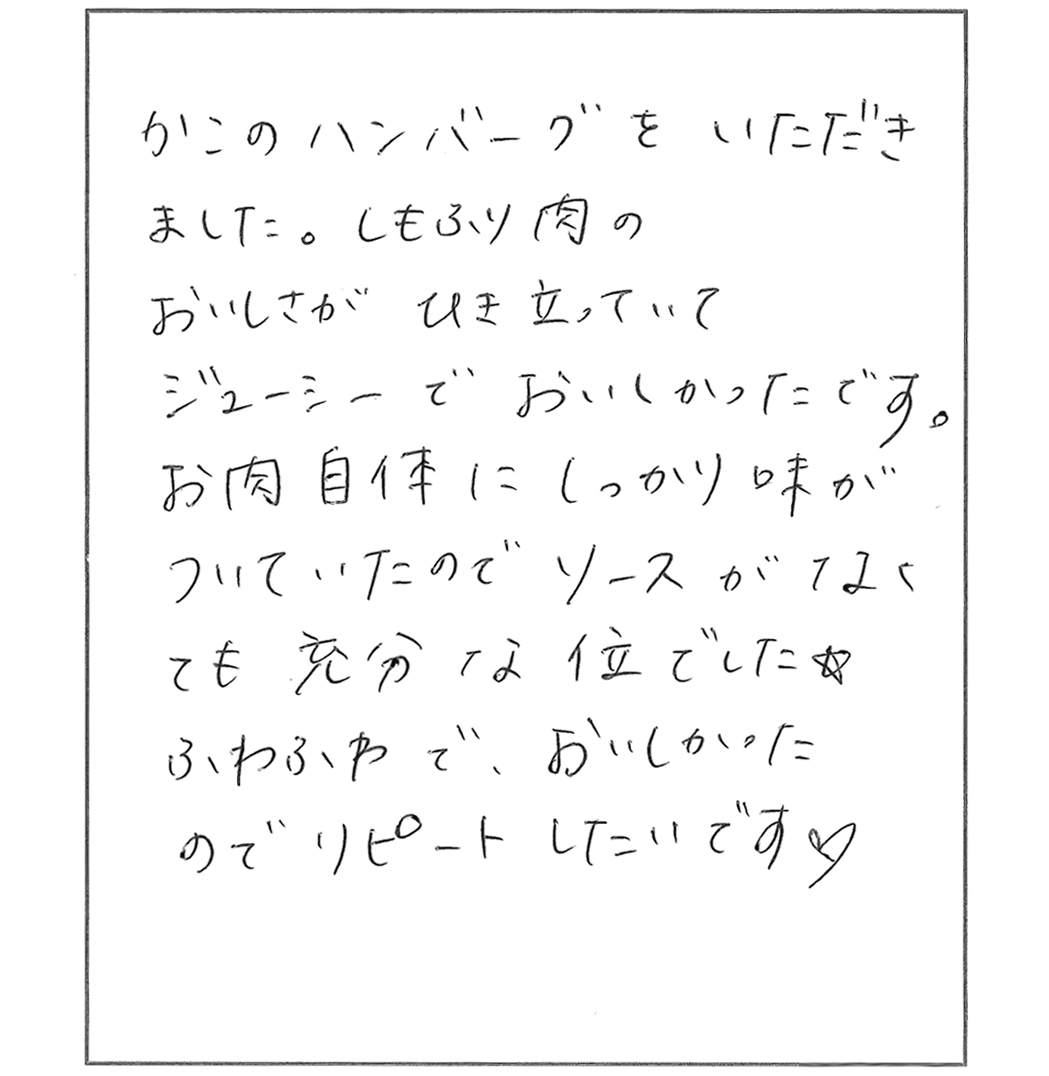 かこのハンバーグを いただき
ました。しもふり肉の
おいしさが ひき立っていて
ジューシーで おいしかったです。
お肉自体に しっかり味が
ついていたので ソースがなく
ても 充分な位でした☆
ふわふわで、おいしかった
ので リピートしたいです♡